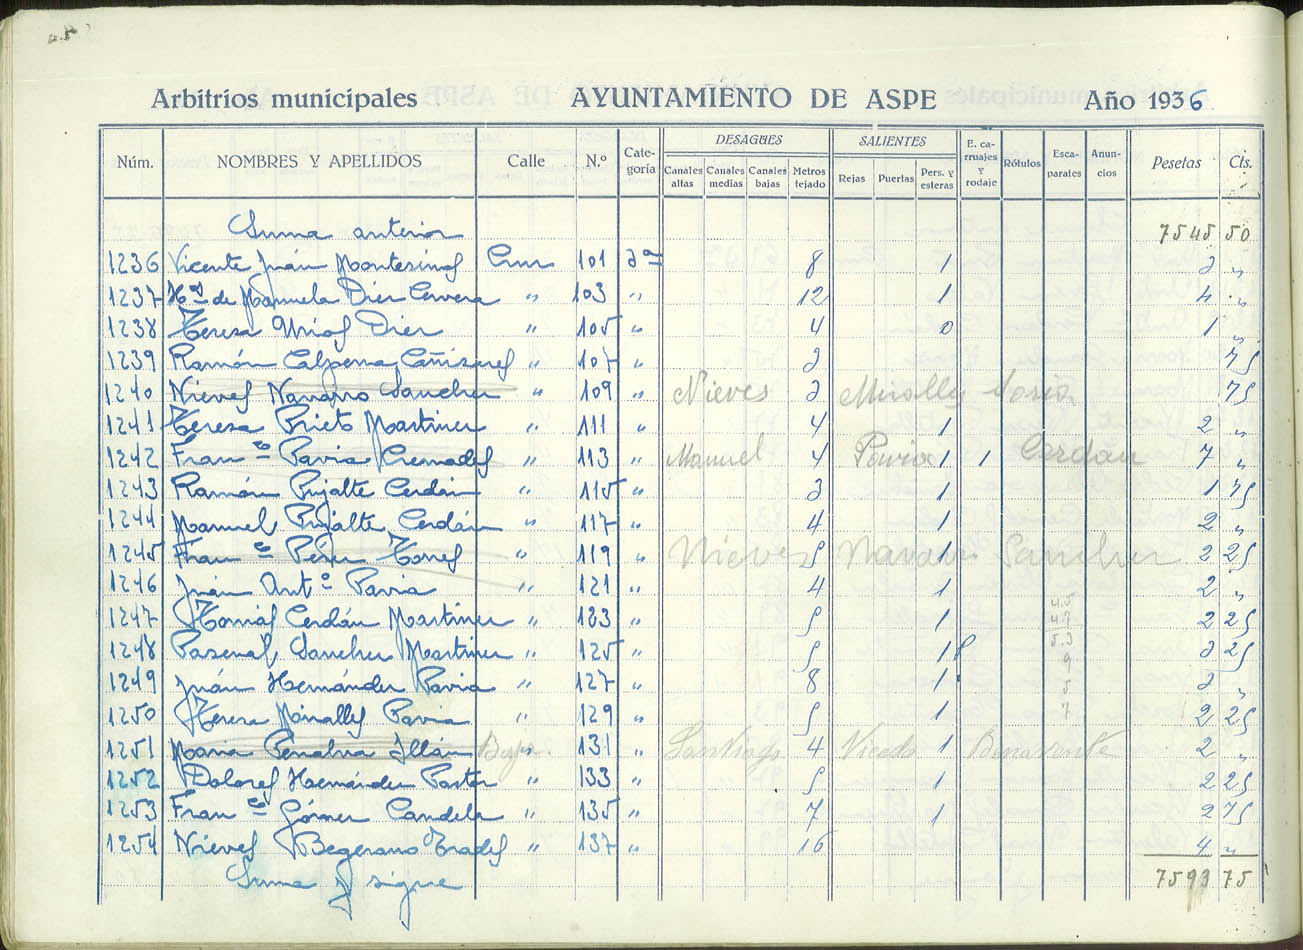 Arbitrios municipales AYUNTAMIENTO DE ASPE Año 1936
Núm. NOMBRES Y APELLIDOS Calle N.º Cate-goría DESAGÜES Canales altas Canales medias Canales bajas Metros tejado SALIENTES Rejas Puertas Pers. y esteras E. ca-rruajes y rodaje Rótulos Esca-parates Anun-cios Pesetas Cts.
Suma anterior 7545 50
1236 Vicente Juán Montesinos Cruz 101 3ª 8 1 3 "
1237 Hºs de Manuela Dier Cervera " 103 " 12 1 4 "
1238 Teresa Urios Dier " 105 " 4 0 1 "
1239 Ramón Calpena Cañizares " 107 " 3 75
1240 Nieves Navarro Sancher " 109 " Nieves 3 Miralles Soria 75
1241 Teresa Prieto Martiner " 111 " 4 1 2 "
1242 Franco Pavia Cremades " 113 " Manuel 4 Pavia 1 1 Cerdán 7 "
1243 Ramón Pujalte Cerdán " 115 " 3 1 1 75
1244 Manuel Pujalte Cerdán " 117 " 4 1 2 "
1245 Franco Pérer Torres " 119 " Nieves 5 Navarro 1 Sancher 2 25
1246 Juán Antº Pavia " 121 " 4 1 2 "
1247 Tomás Cerdán Martiner " 123 " 5 1 2 25
1248 Pascual Sancher Martiner " 125 " 5 1 3 25
1249 Juán Hernánder Pavia " 127 " 8 1 3 "
1250 Teresa Miralles Pavia " 129 " 5 1 2 25
1251 Maria Penalva Illán " 131 " Santiago 4 Vicedo 1 Benavente 2 "
1252 Dolores Hernánder Pastor " 133 " 5 1 2 25
1253 Franco Gómer Candela " 135 " 7 1 2 75
1254 Nieves Begerano Prades " 137 " 16 4 "
Suma y sigue 7593 75